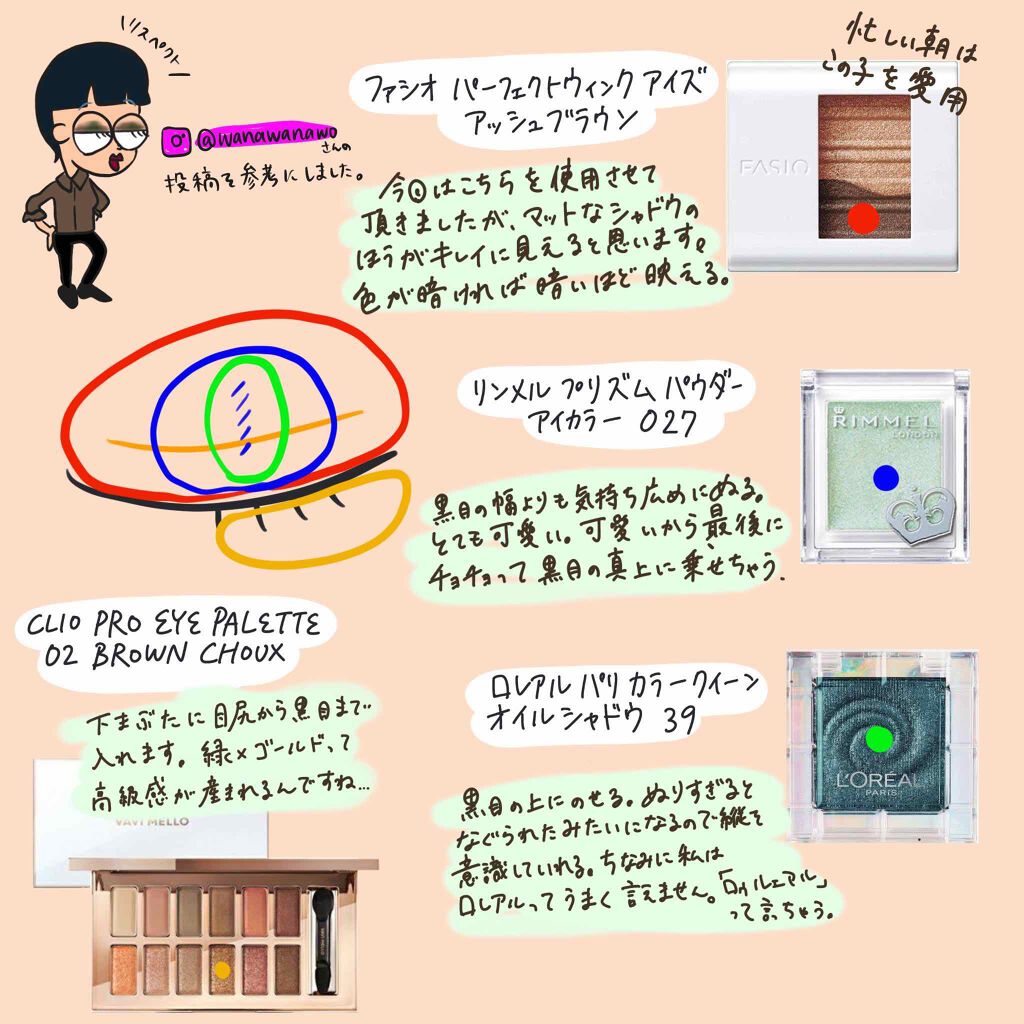 リスペクト
@wanawanawo
さんの
投稿を参考にしました。
忙しい朝は
この子を愛用
ファシオ パーフェクトウィンク アイズ
アッシュブラウン
FASIO
今回はこちらを使用させて
頂きましたが、マットなシャドウの
ほうがキレイに見えると思います。
色が暗ければ暗いほど映える。
リンメル プリズム パウダー
アイカラー 027
RIMMEL
LONDON
黒目の幅よりも気持ち広めにぬる。
とても可愛い。可愛いから最後に
チョチョって黒目の真上に乗せちゃう.
CLIO PRO EYE PALETTE
02 BROWN CHOUX
下まぶたに目尻から黒目まで
入れます。緑×ゴールドって
高級感が産まれるんですね...
VAVI MELLO
ロレアル パリ カラークイーン
オイルシャドウ 39
L'ORÉAL
PARIS
黒目の上にのせる。ぬりすぎると
なぐられたみたいになるので縦を
意識していれる。ちなみに私は
ロレアルってうまく言えません。「ロゥルェアル」
って言っちゃう。